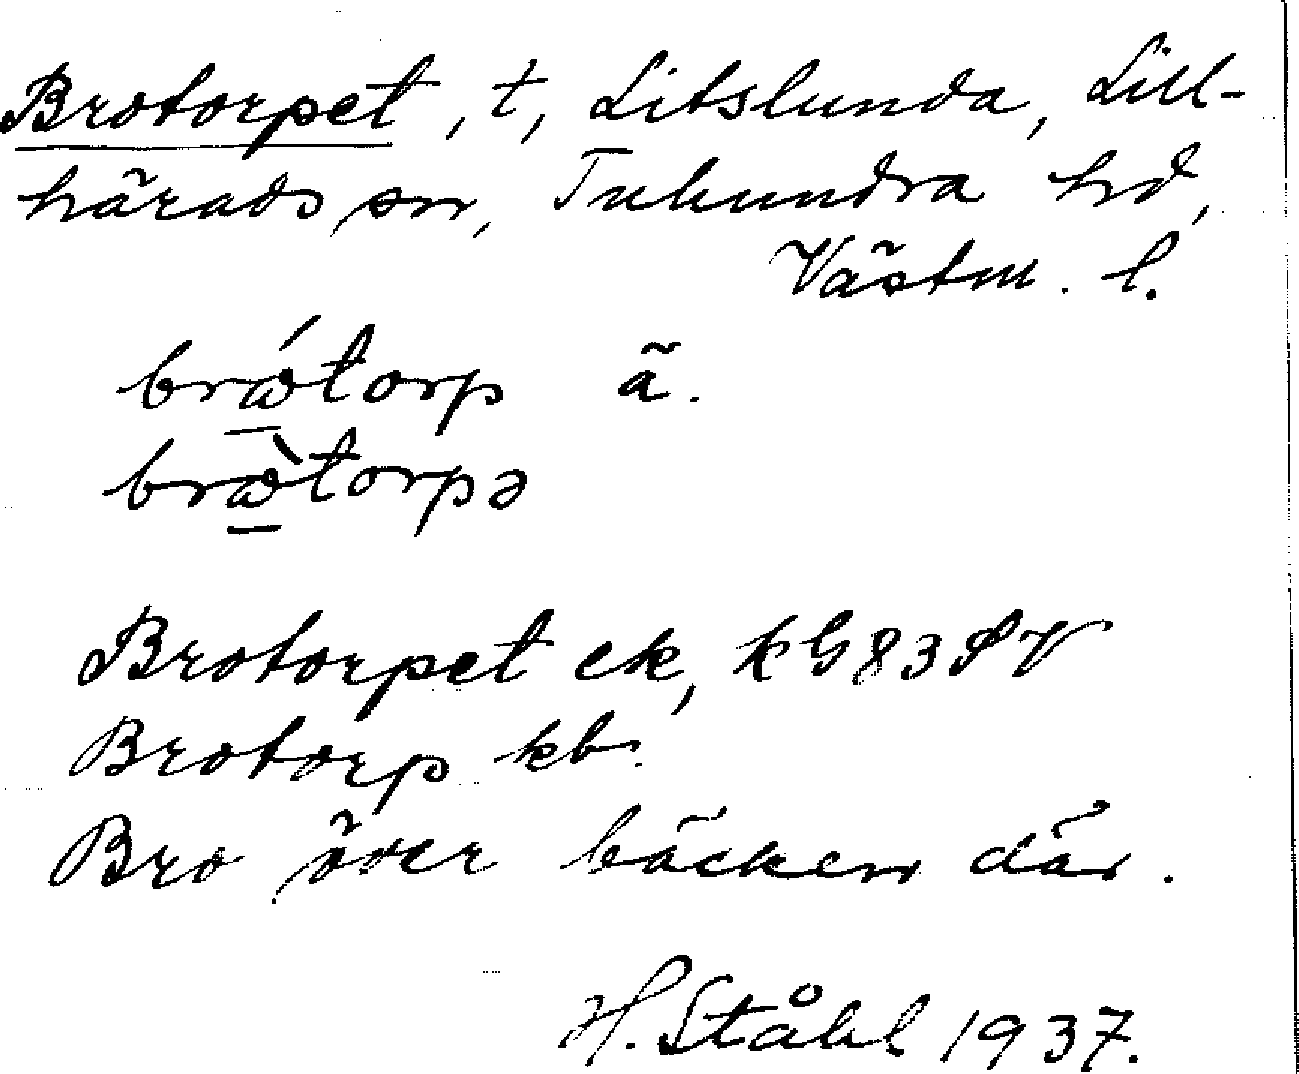 Brotorpet, t, Litslunda, Lill-
härads sn, Tuhundra hd,
Västm. l.
brώ̲torp ä.
brὼ̲torpə
Brotorpet ek, kG83SV
Brotorp kb.
Bro över bäcken där.
H. Ståhl 1937.